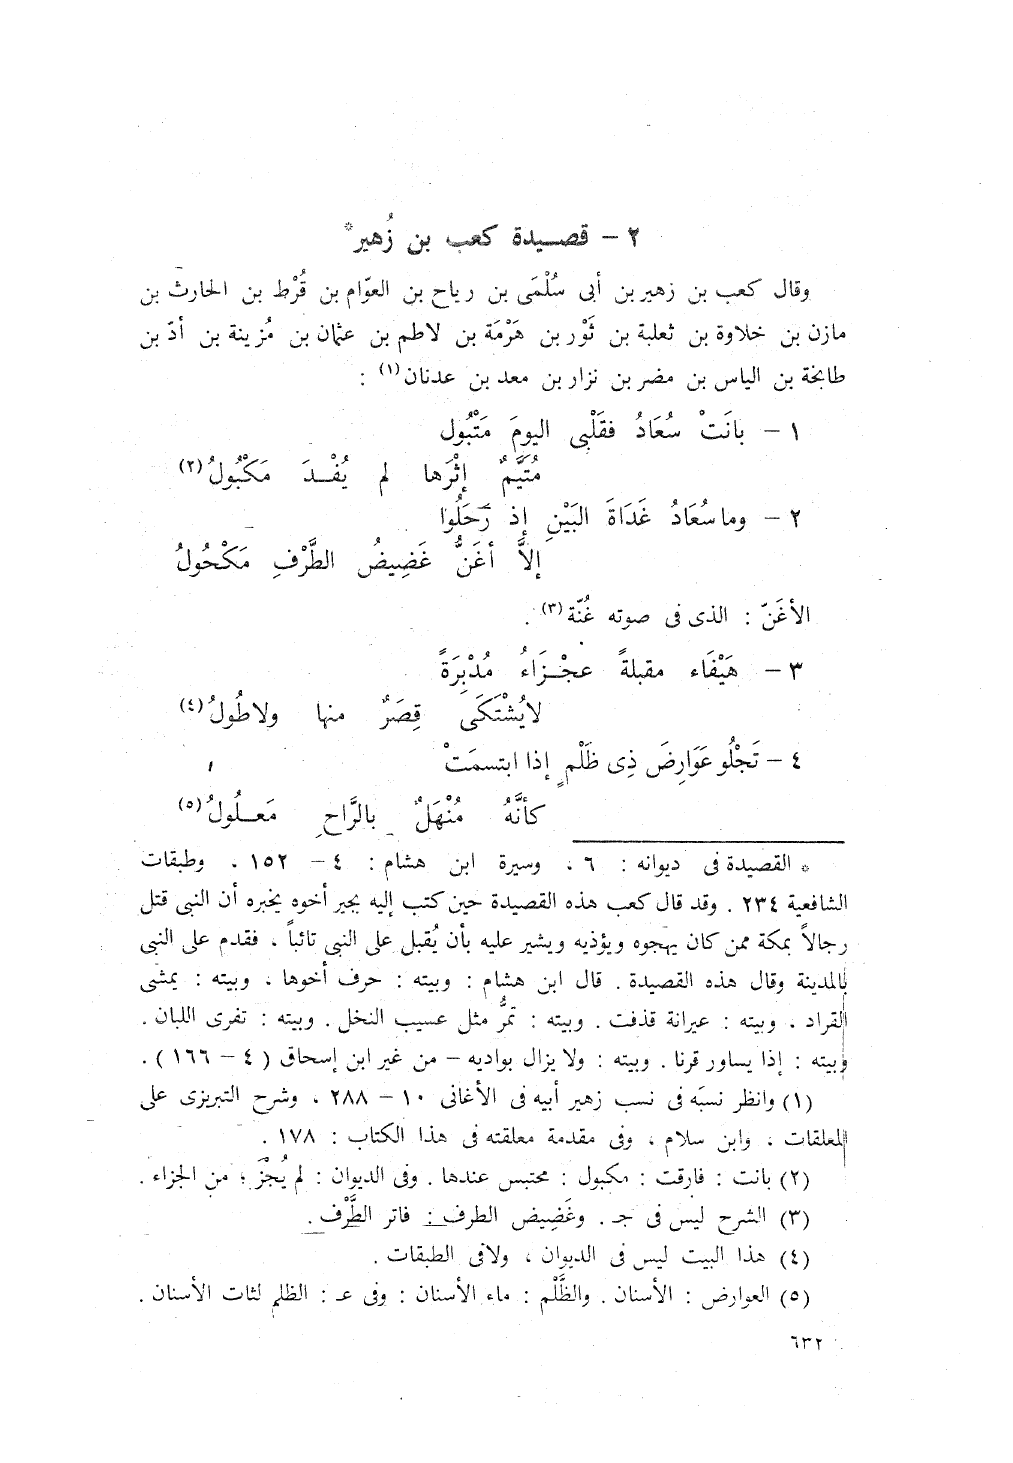 ٢ – قصيدة كعب بن زُهير*
وقال كعب بن زهير بن أبى سُلْمَى بن رياح بن العوّام بن قُرْط بن الحارث بن
مازن بن خلاوة بن ثعلبة بن ثَوْر بن هَرْمَة بن لاطم بن عثمان بن مُزينة بن أدّ بن
طابخة بن الياس بن مضر بن نزار بن معد بن عدنان(١) :
١ – بانَتْ سُعَادُ فقَلْبِى اليومَ مَتْبُول
مُتَيَّمٌ إثْرَها لم يُفْـدَ مَكْبُولُ(٢)
٢ – وما سُعَادُ غَدَاةَ البَيْنِ إذ رَحَلُوا
إلاَّ أغَنُّ غَضِيضُ الطَّرْفِ مَكْحُولُ
الأغَنّ : الذى فى صوته غُنّة(٣) .
٣ – هَيْفَاء مقبلةً عجْـزَاءُ مُدْبِرَةً
لايُشْتَكَى قِصَرٌ منها ولاطُولُ(٤)
٤ – تَجْلُو عَوَارِضَ ذِى ظَلْمٍ إذا ابتسمَتْ
كأنَّهُ مُنْهَلٌ بالرَّاحِ مَعـلُولُ(٥)
* القصيدة فى ديوانه : ٦ ، وسيرة ابن هشام : ٤ – ١٥٢ ، وطبقات
الشافعية ٢٣٤ . وقد قال كعب هذه القصيدة حين كتب إليه بجير أخوه يخبره أن النبى قتل
رجالاً بمكة ممن كان يهجوه ويؤذيه ويشير عليه بأن يُقبل على النبى تائباً ، فقدم على النبى
بالمدينة وقال هذه القصيدة . قال ابن هشام : وبيته : حرف أخوها ، وبيته : يمشى
القراد ، وبيته : عيرانة قذفت . وبيته : تمرُّ مثل عسيب النخل . وبيته : تفرى اللبان .
وبيته : إذا يساور قرنا . وبيته : ولا يزال بواديه – من غير ابن إسحاق ( ٤ – ١٦٦ ) .
(١) وانظر نسبَه فى نسب زهير أبيه فى الأغانى ١٠ – ٢٨٨ ، وشرح التبريزى على
المعلقات ، وابن سلام ، وفى مقدمة معلقته فى هذا الكتاب : ١٧٨ .
(٢) بانت : فارقت : مكبول : محتبس عندها . وفى الديوان : لم يُجْزَ ؛ من الجزاء .
(٣) الشرح ليس فى جـ . وغَضِيض الطرف : فاتر الطَّرْف .
(٤) هذا البيت ليس فى الديوان ، ولافى الطبقات .
(٥) العوارض : الأسنان . والظَّلْم : ماء الأسنان : وفى عـ : الظلم لثات الأسنان .
٦٣٢